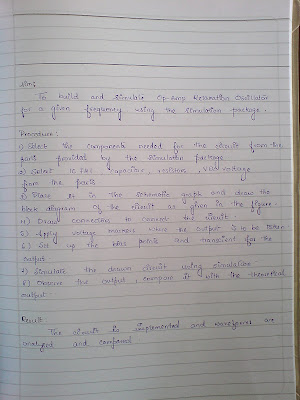 Aim:
To build and simulate Op-Amp Relaxation Oscillator
for a given frequency using the simulation package.
Procedure:
1) Select the components needed for the circuit from the
parts provided by the simulation package
2) Select IC 741, capacitor, resistor, voltage
from the parts
3) Place it in the schematic graph and draw the
block diagram of the circuit as given in the figure.
4) Draw connections to connect the circuit.
5) Apply voltage markers where the output is to be taken
6) Set up the bias points and transient for the
output
7) Simulate the drawn circuit using simulation
8) Observe the output, compare it with the theoretical
output.
Result
The circuit is implemented and waveforms are
analysed and compared